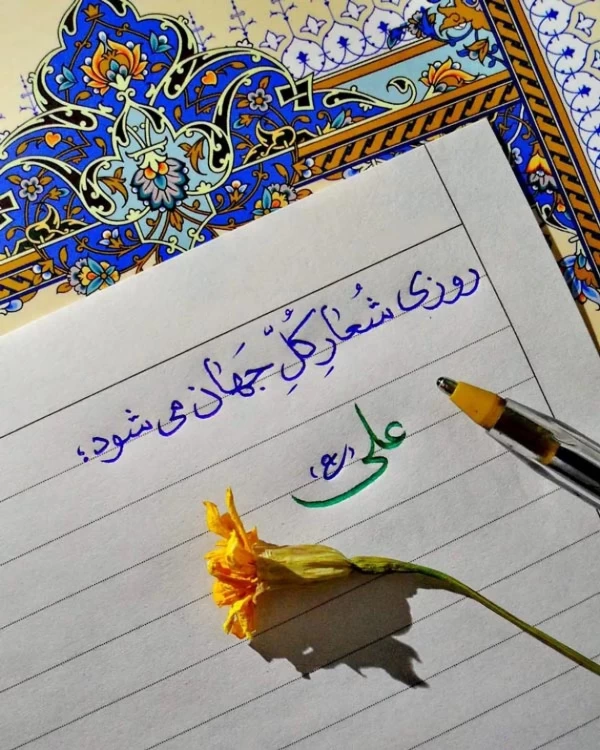 روزی شُعارِ کُلِّ جَهان می شود؛
علی (ع)